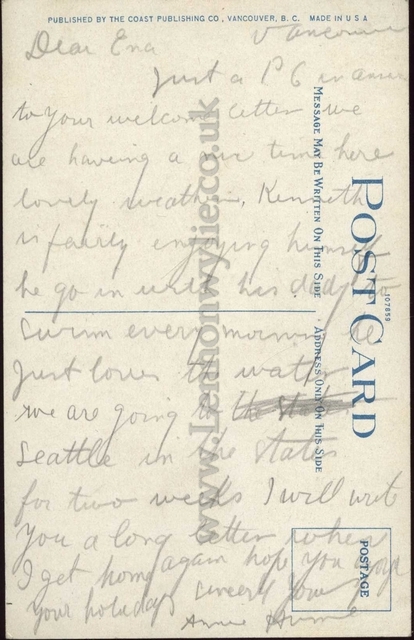 PUBLISHED BY THE COAST PUBLISHING CO., VANCOUVER, B. C. MADE IN U S A
Vancouver
Dear Ena
Just a P C in answer
to your welcome letter we
are having a nice time here
lovely weather, Kenneth
is fairly enjoying himself
he go in with his dady to
swim every morning he
just loves the water
we are going to the State
Seattle in the States
for two weeks I will write
you a long letter when
I get home again hope you enjoy
your holidays sincerely yours
Annie
POST CARD
MESSAGE MAY BE WRITTEN ON THIS SIDE
ADDRESS ONLY ON THIS SIDE
107859
POSTAGE
www.Lennonwylie.co.uk